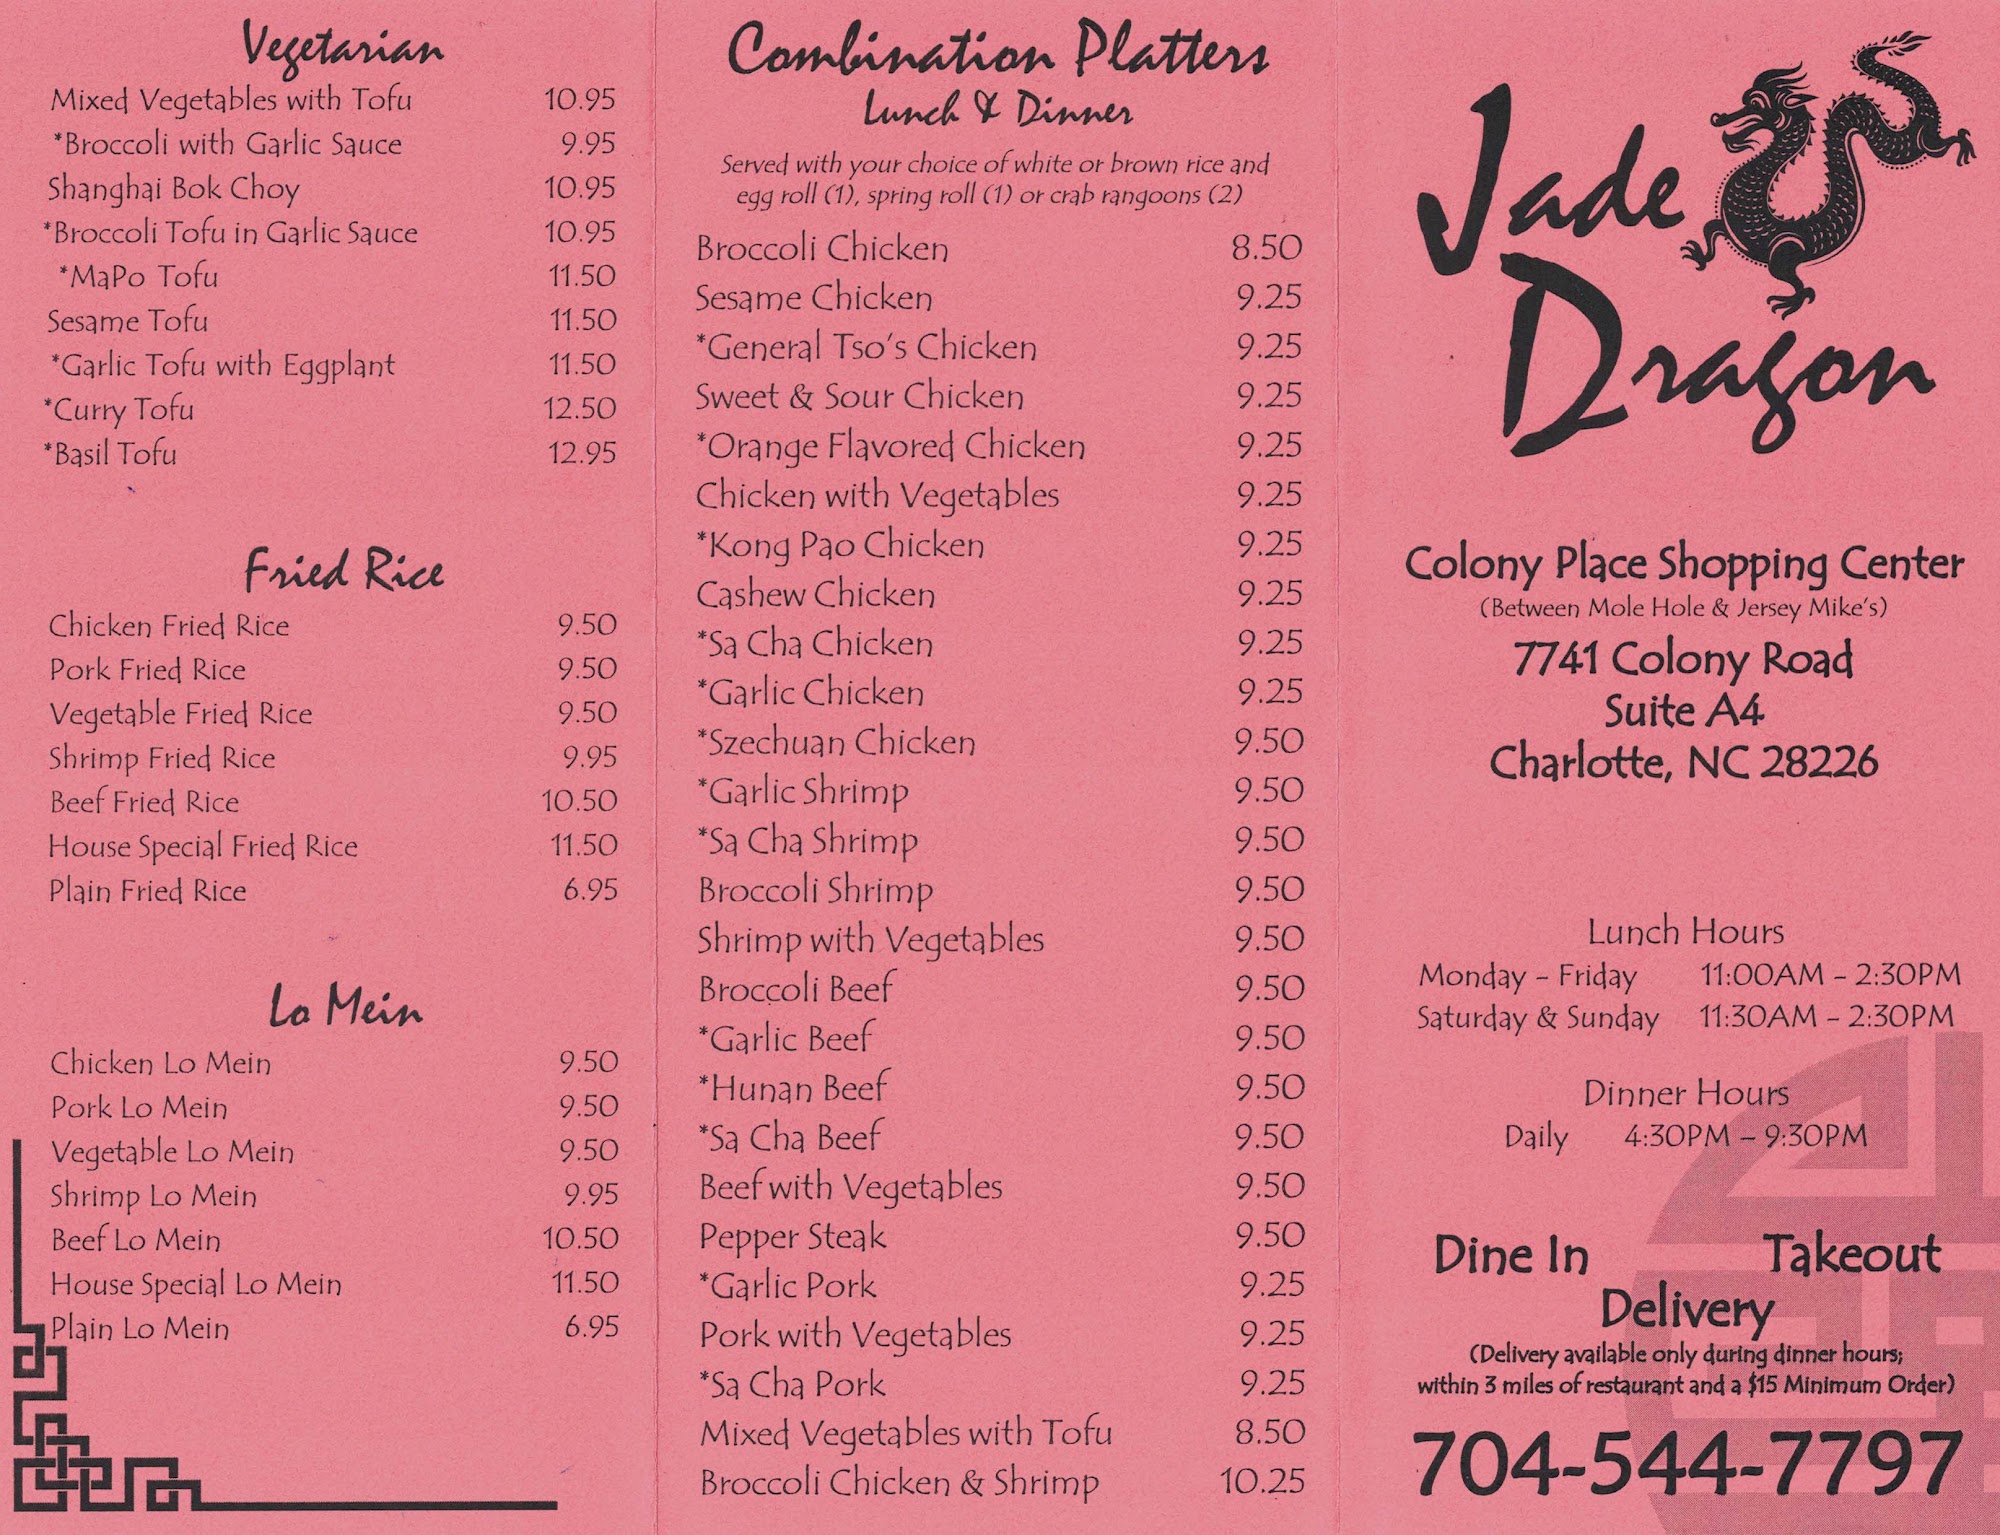 Vegetarian
Mixed Vegetables with Tofu 10.95
*Broccoli with Garlic Sauce 9.95
Shanghai Bok Choy 10.95
*Broccoli Tofu in Garlic Sauce 10.95
*MaPo Tofu 11.50
Sesame Tofu 11.50
*Garlic Tofu with Eggplant 11.50
*Curry Tofu 12.50
*Basil Tofu 12.95
Fried Rice
Chicken Fried Rice 9.50
Pork Fried Rice 9.50
Vegetable Fried Rice 9.50
Shrimp Fried Rice 9.95
Beef Fried Rice 10.50
House Special Fried Rice 11.50
Plain Fried Rice 6.95
Lo Mein
Chicken Lo Mein 9.50
Pork Lo Mein 9.50
Vegetable Lo Mein 9.50
Shrimp Lo Mein 9.95
Beef Lo Mein 10.50
House Special Lo Mein 11.50
Plain Lo Mein 6.95
Combination Platters
Lunch & Dinner
Served with your choice of white or brown rice and
egg roll (1), spring roll (1) or crab rangoons (2)
Broccoli Chicken 8.50
Sesame Chicken 9.25
*General Tso's Chicken 9.25
Sweet & Sour Chicken 9.25
*Orange Flavored Chicken 9.25
Chicken with Vegetables 9.25
*Kong Pao Chicken 9.25
Cashew Chicken 9.25
*Sa Cha Chicken 9.25
*Garlic Chicken 9.25
*Szechuan Chicken 9.50
*Garlic Shrimp 9.50
*Sa Cha Shrimp 9.50
Broccoli Shrimp 9.50
Shrimp with Vegetables 9.50
Broccoli Beef 9.50
*Garlic Beef 9.50
*Hunan Beef 9.50
*Sa Cha Beef 9.50
Beef with Vegetables 9.50
Pepper Steak 9.50
*Garlic Pork 9.25
Pork with Vegetables 9.25
*Sa Cha Pork 9.25
Mixed Vegetables with Tofu 8.50
Broccoli Chicken & Shrimp 10.25
Jade
Dragon
Colony Place Shopping Center
(Between Mole Hole & Jersey Mike's)
7741 Colony Road
Suite A4
Charlotte, NC 28226
Lunch Hours
Monday - Friday 11:00AM - 2:30PM
Saturday & Sunday 11:30AM - 2:30PM
Dinner Hours
Daily 4:30PM - 9:30PM
Dine In Takeout
Delivery
(Delivery available only during dinner hours;
within 3 miles of restaurant and a $15 Minimum Order)
704-544-7797